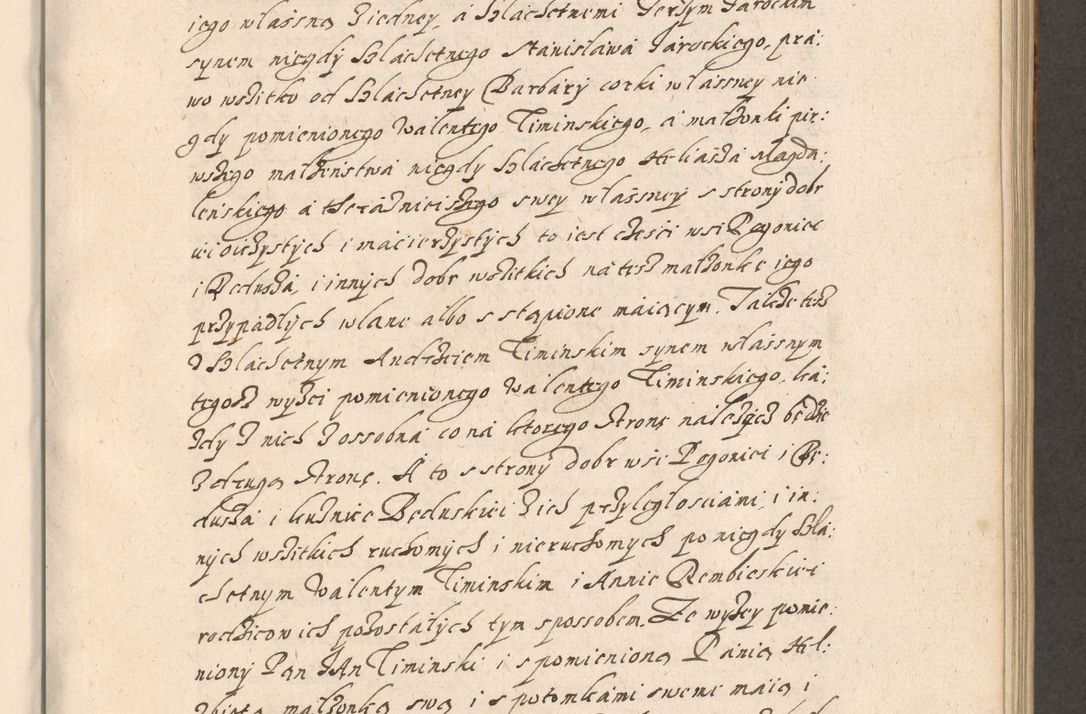 iego własną z iedney, a Szlachetnemi Jerzym Jarockim
synem niegdy Szlachetnego Stanisława Jarockiego, pra:
wo wszitko od Szlachetney Barbary corki własney nie
gdy pomienionego Walentego Timinskiego, a małżonki pir:
wszego małżeństwa niegdy Szlachetnego Heliasza Magda:
leńskiego a theraznieiszego swey własney s strony dobr
oiczystych i macierzystych to iest części wsi Pogonice
i Będusza, i innych dobr wszitkich na też małżonkę iego
przypadłych wlane albo s stąpione maiącym. Także też
z Szlachetnym Andrzeiem Timinskim synem własnym
tegosz wyżei pomienionego Walentego Timinskiego, ka:
żdy z nich z ossobna co na ktorego stronę należecz będzie
z drugą stronę. A to s strony dobr wsi Pogonici i Bę:
dusza i kuźnice Będuskiei z ich przyległosciami, i in:
nych wszitkich ruchomych i nieruchomych po niegdy Szla:
chetnym Walentym Timinskim i Annie Rembieskiei
rodzicow ich pozostałych tym spossobem. Ze wyżey pomie:
niony Pan Jan Timinski i s pomienioną Panią Hel:
żbietą małżonką swą i s potomkami swemi maią i